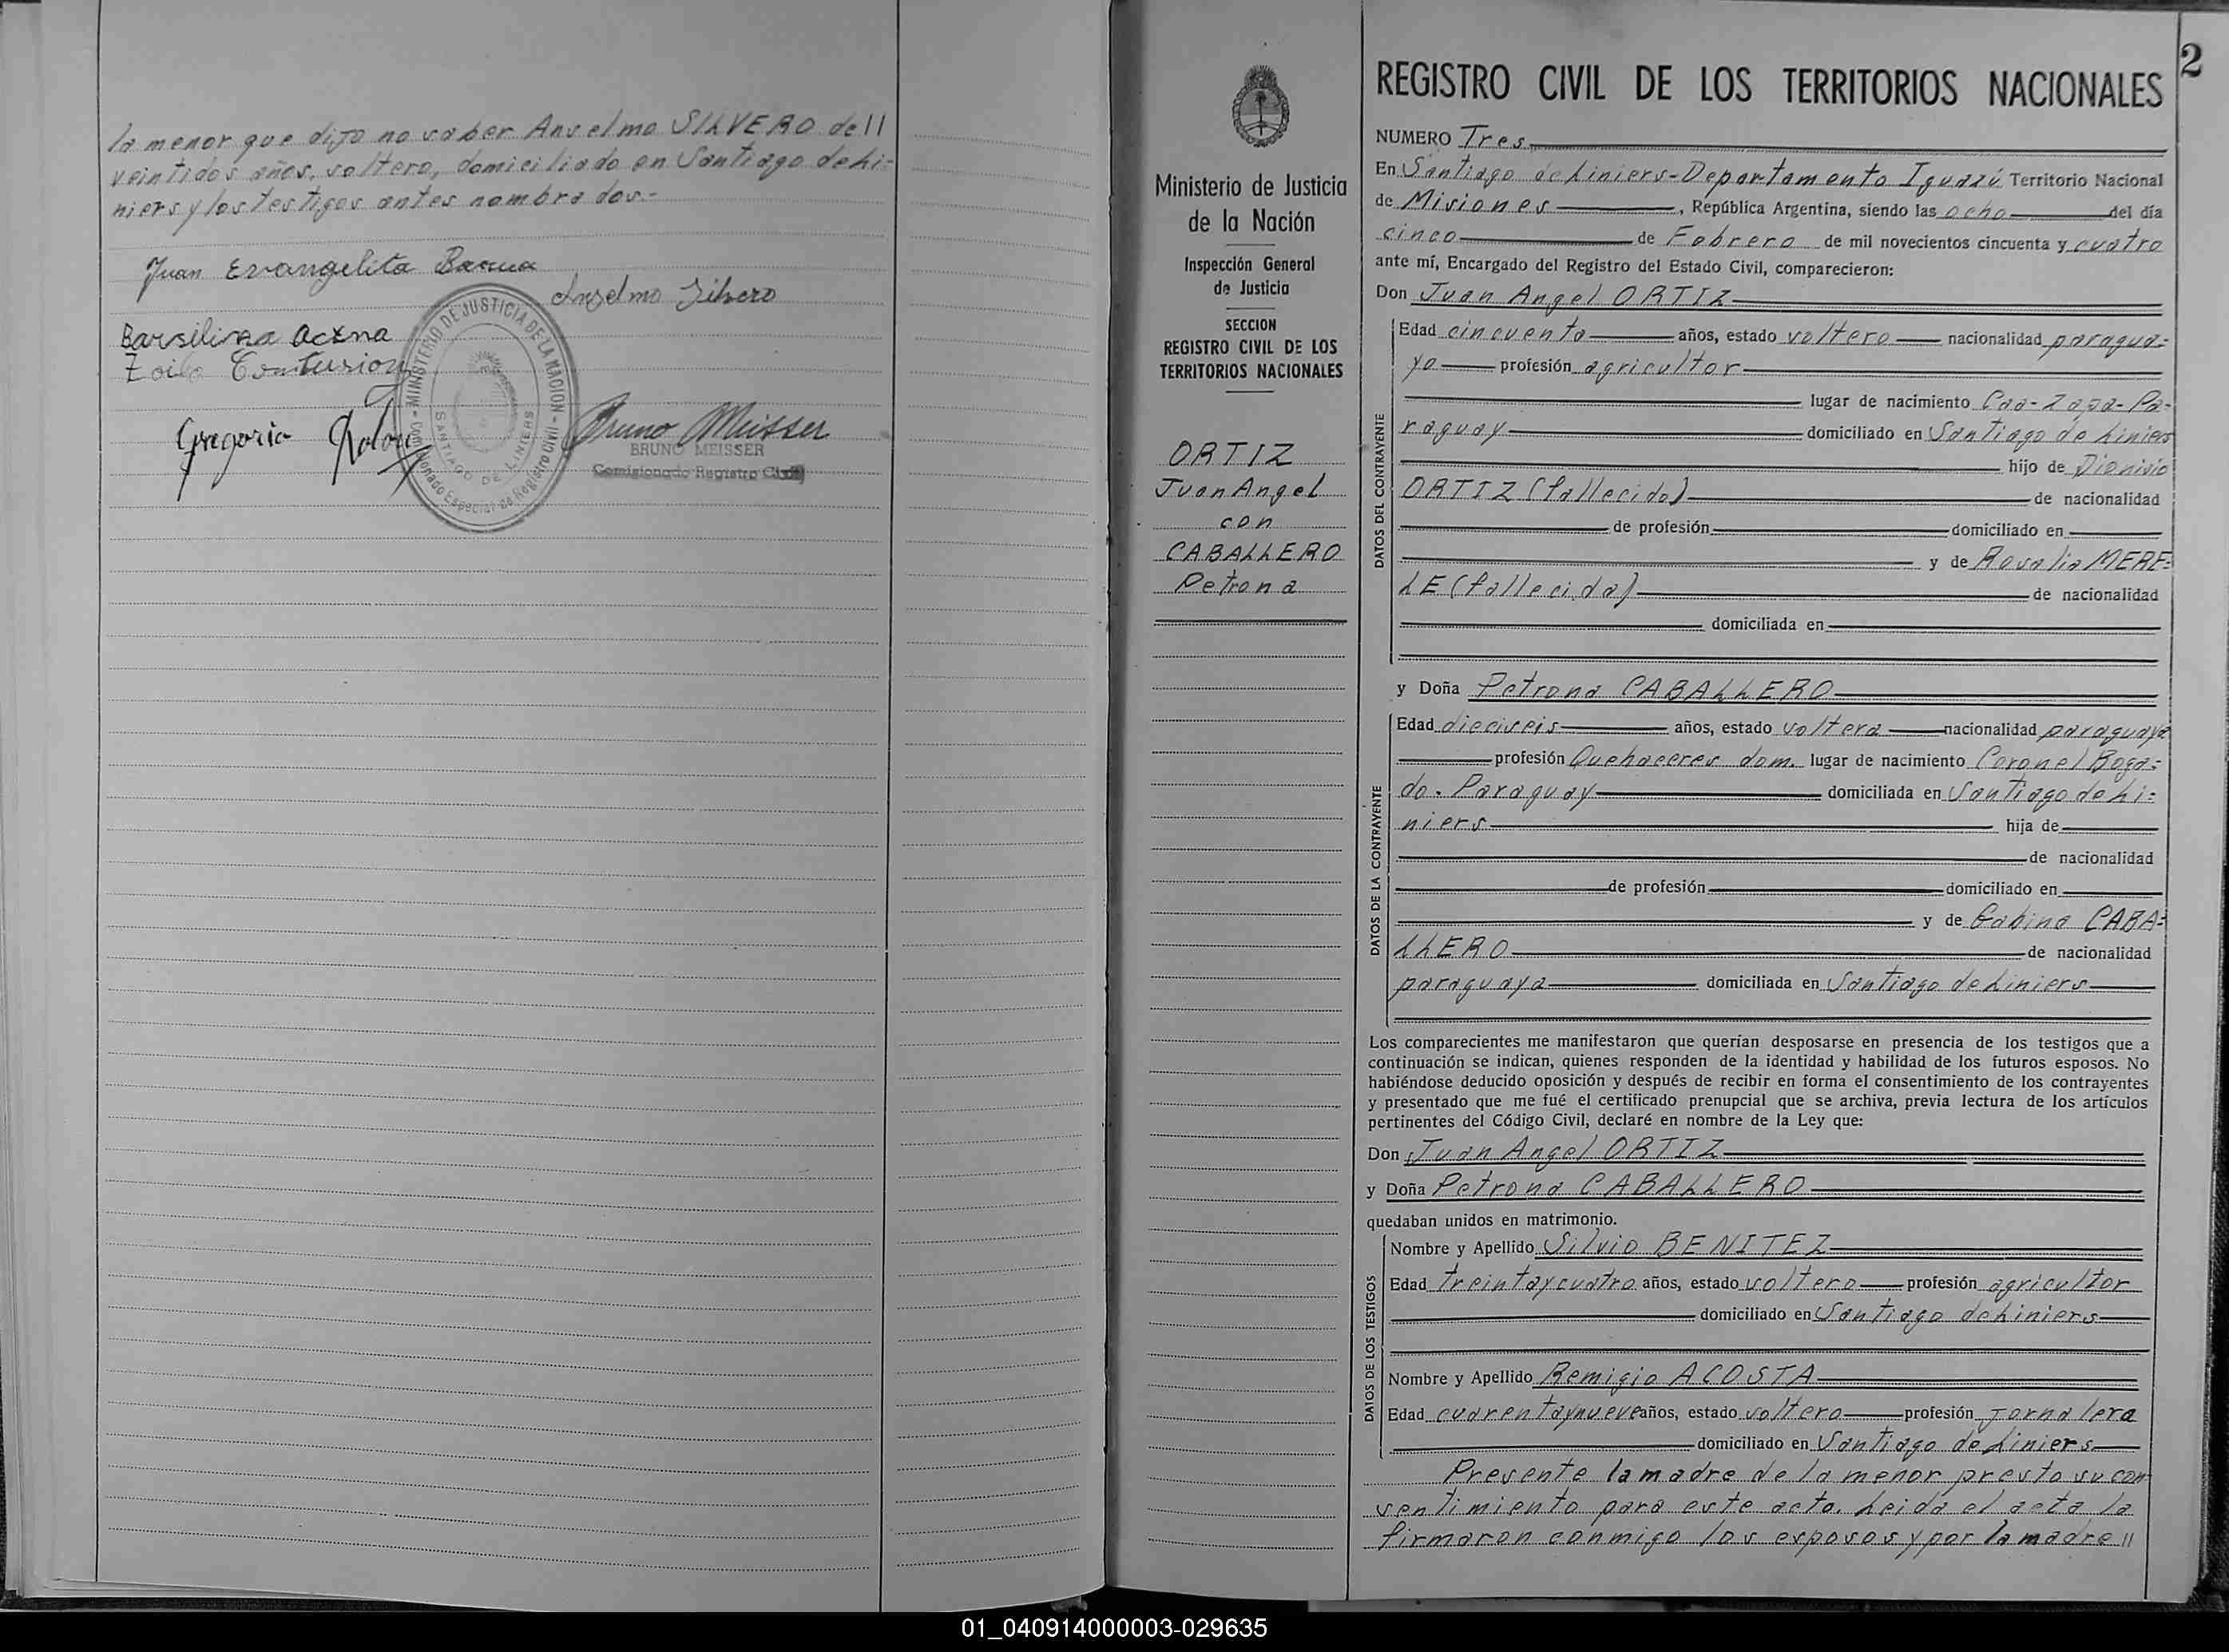 la menor que dijo no saber Anselmo SILVERO de ll
veintidos años, soltero, domiciliado en Santiago de Li=
niers y los testigos antes nombrados.-
Juan Evangelita
Anselmo Silvero
Barsiliza
Zoilo
Gregorio
MINISTERIO DE JUSTICIA DE LA NACION - Comisionado Especial de Registro Civil -
SANTIAGO DE LINIERS
Bruno Meisser
BRUNO MEISSER
Comisionado Registro Civil
Ministerio de Justicia
de la Nación
Inspección General
de Justicia
SECCION
REGISTRO CIVIL DE LOS
TERRITORIOS NACIONALES
ORTIZ
Juan Angel
con
CABALLERO
Petrona
2
REGISTRO CIVIL DE LOS TERRITORIOS NACIONALES
NUMERO Tres
En Santiago de Liniers-Departamento Iguazú Territorio Nacional
de Misiones, República Argentina, siendo las ocho del día
cinco de Febrero de mil novecientos cincuenta y cuatro
ante mí, Encargado del Registro del Estado Civil, comparecieron:
Don Juan Angel ORTIZ
DATOS DEL CONTRAYENTE
Edad cincuenta años, estado soltero nacionalidad paragua=
yo profesión agricultor
lugar de nacimiento Caa-Zapa-Pa-
raguay domiciliado en Santiago de Liniers
hijo de Dionisio
ORTIZ (fallecido) de nacionalidad
de profesión domiciliado en
y de Rosalia MERE=
LE (fallecida) de nacionalidad
domiciliada en
y Doña Petrona CABALLERO
DATOS DE LA CONTRAYENTE
Edad dieciseis años, estado soltera nacionalidad paraguaya
profesión Quehaceres dom. lugar de nacimiento Coronel Boga=
do. Paraguay domiciliada en Santiago de Li=
niers hija de
de nacionalidad
de profesión domiciliado en
y de Gabina CABA=
LLERO de nacionalidad
paraguaya domiciliada en Santiago de Liniers
Los comparecientes me manifestaron que querían desposarse en presencia de los testigos que a
continuación se indican, quienes responden de la identidad y habilidad de los futuros esposos. No
habiéndose deducido oposición y después de recibir en forma el consentimiento de los contrayentes
y presentado que me fué el certificado prenupcial que se archiva, previa lectura de los artículos
pertinentes del Código Civil, declaré en nombre de la Ley que:
Don Juan Angel ORTIZ
y Doña Petrona CABALLERO
quedaban unidos en matrimonio.
DATOS DE LOS TESTIGOS
Nombre y Apellido Silvio BENITEZ
Edad treintaycuatro años, estado soltero profesión agricultor
domiciliado en Santiago de Liniers
Nombre y Apellido Remigio ACOSTA
Edad cuarentaynueve años, estado soltero profesión jornalera
domiciliado en Santiago de Liniers
Presente la madre de la menor presto su con
sentimiento para este acto. Leida el acta la
firmaron conmigo los esposos y por la madre ll
01_040914000003-029635